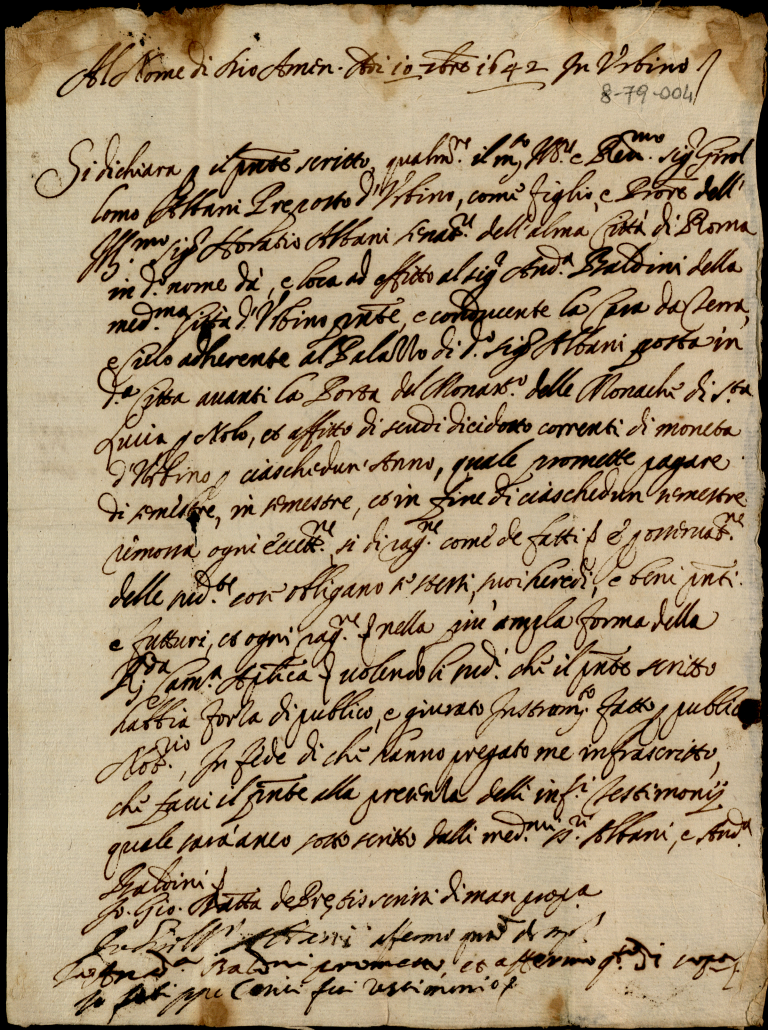 Al Nome di Dio Amen. Adi 10 xbre 1642 In Urbino
8-79-004
Si dichiara p il pnte scritto, qualm.te il m.to Ill.re e Rev.mo sig.r Girol
lomo Albani Preposto d'Urbino, come figlio, e Prore dell'
Ill.mo sig.r Horatio Albani senat.re dell'alma Città di Roma
in d.o nome dà, e loca ad effitto al sig.r And.a Baldini della
med.ma Città d'Urbino pnte, e conducente la Casa da Terra,
e Cielo adherente al Palazzo di d.o sig.r Albani posta in
d.a Citta avanti la Porta del Monast.o delle Monache di S.ta
Lucia p Nolo, et affitto di scudi dicidotto correnti di moneta
d'Urbino p ciaschedun'Anno, quale promette pagare
di semestre, in semestre, et in fine di ciaschedun semestre
rimossa ogni eccett.ne, si di rag.ne come de fatti p e osservat.ne
delle sud.te cose obligano se stessi, suoi heredi, e beni pnti.
e futturi, et ogni rag.ne nella piu' ampla forma della
R.da Cam.a Aplica volendo li sud.i che il pnte scritto
habbia forza di publico, e giurato Instrom.to fatto p publico
Not.rio, In fede di che hanno pregato me infrascritto,
che facci il pnte alla presenza delli inf.i testimonij
quale sarà anco sotto scritto dalli med.mi s.ri Albani, e And.a
Baldini
Io. Gio. Batta de scrissi di man propa
Io Albani affermo quanto di sop.a
Io And.a Baldini prometto, et affermo q.to di sopa
Io fui testimonio